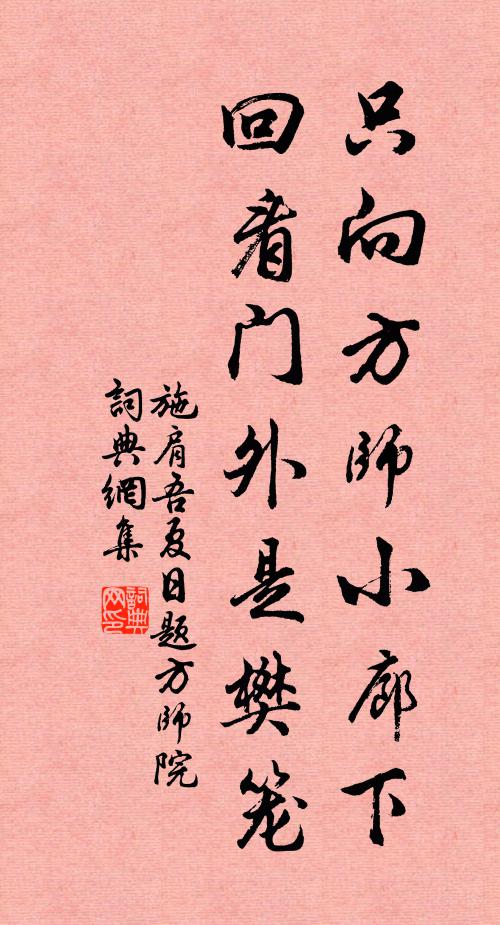 只向方師小廊下
回看门外是樊笼
施肩吾夏日题方師院
詞典網集
詞典网印